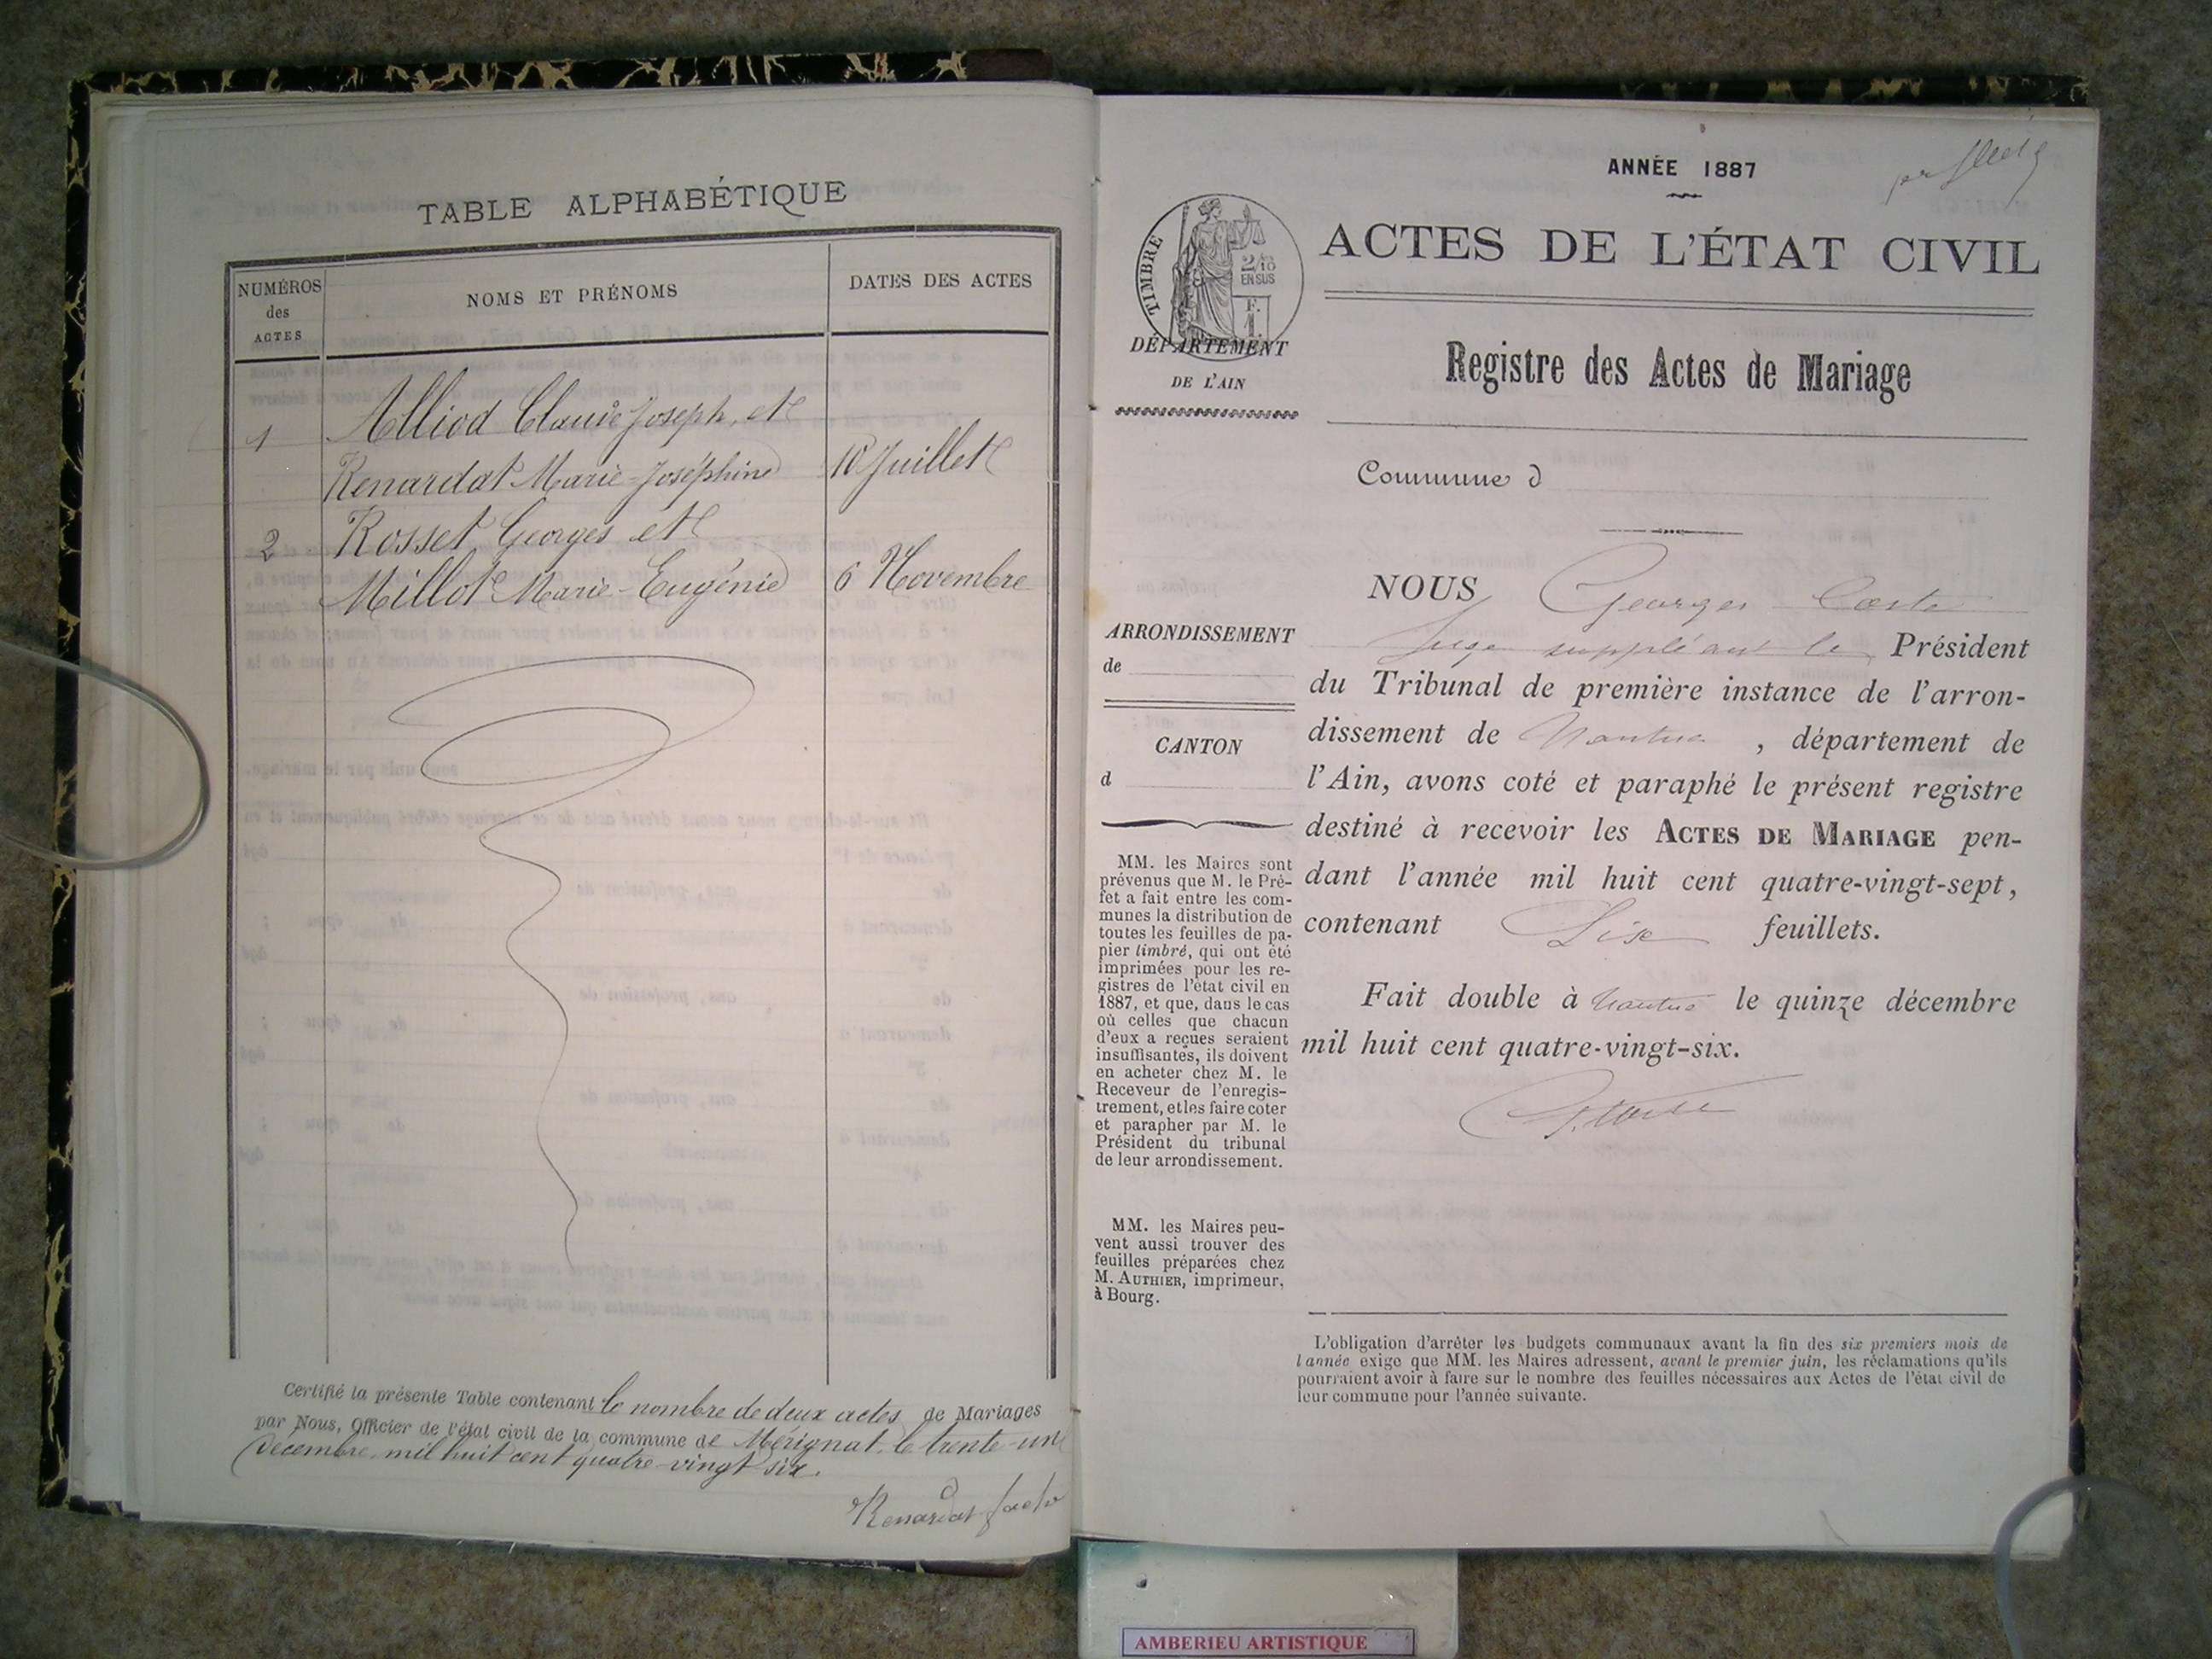 TABLE ALPHABÉTIQUE
NUMÉROS
des
ACTES
NOMS ET PRÉNOMS
DATES DES ACTES
1
Alliod Claude Joseph, et
Renardat Marie-Joséphine
10 Juillet
2
Rosset Georges et
Millot Marie-Eugénie
6 Novembre
Certifié la présente Table contenant le nombre de deux actes de Mariages
par Nous, Officier de l'état civil de la commune de Mérignat, le trente-un
décembre, mil huit cent quatre-vingt six.
Renardat
ANNÉE 1887
ACTES DE L'ÉTAT CIVIL
TIMBRE
2/10
EN SUS
F.
1.
DÉPARTEMENT
DE L'AIN
Registre des Actes de Mariage
Commune d
NOUS Georges Coste
Juge suppléant le Président
du Tribunal de première instance de l'arron-
dissement de Nantua, département de
l'Ain, avons coté et paraphé le présent registre
destiné à recevoir les ACTES DE MARIAGE pen-
dant l'année mil huit cent quatre-vingt-sept,
contenant Six feuillets.
Fait double à Nantua le quinze décembre
mil huit cent quatre-vingt-six.
G. Coste
ARRONDISSEMENT
de
CANTON
d
MM. les Maires sont
prévenus que M. le Pré-
fet a fait entre les com-
munes la distribution de
toutes les feuilles de pa-
pier timbré, qui ont été
imprimées pour les re-
gistres de l'état civil en
1887, et que, dans le cas
où celles que chacun
d'eux a reçues seraient
insuffisantes, ils doivent
en acheter chez M. le
Receveur de l'enregis-
trement, et les faire coter
et parapher par M. le
Président du tribunal
de leur arrondissement.
MM. les Maires peu-
vent aussi trouver des
feuilles préparées chez
M. AUTHIER, imprimeur,
à Bourg.
L'obligation d'arrêter les budgets communaux avant la fin des six premiers mois de
l'année exige que MM. les Maires adressent, avant le premier juin, les réclamations qu'ils
pourraient avoir à faire sur le nombre des feuilles nécessaires aux Actes de l'état civil de
leur commune pour l'année suivante.
AMBERIEU ARTISTIQUE